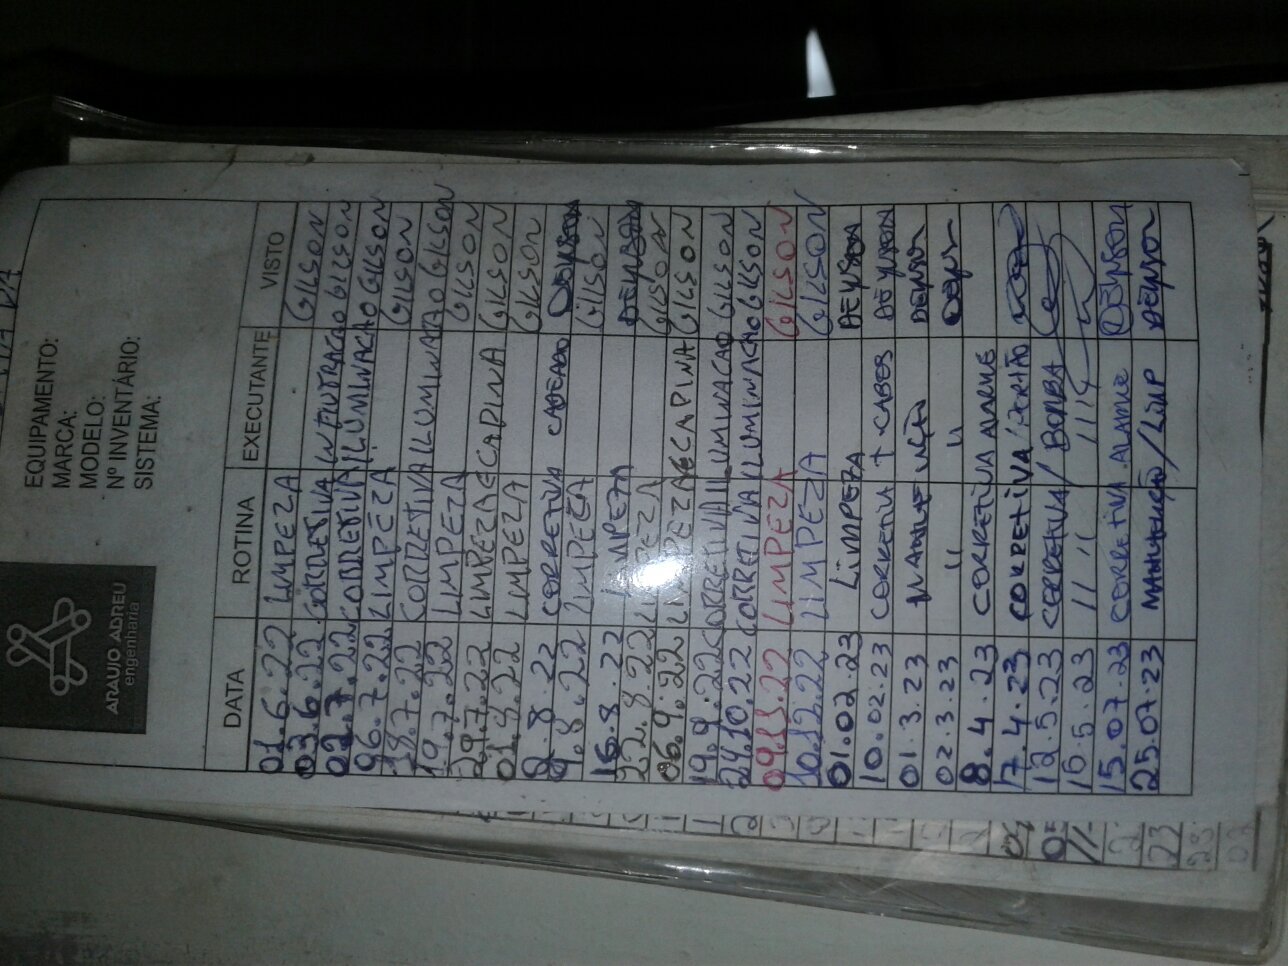 ARAUJO ADREU
engenharia
EQUIPAMENTO:
MARCA:
MODELO:
Nº INVENTÁRIO:
SISTEMA:
DATA ROTINA EXECUTANTE VISTO
01.6.22 LIMPEZA GILSON
03.6.22 CORRETIVA GILSON
02.7.22 CORRETIVA ILUMINACAO GILSON
06.7.22 LIMPEZA GILSON
18.7.22 CORRETIVA ILUMINACAO GILSON
19.7.22 LIMPEZA GILSON
29.7.22 LIMPEZA E CAPINA GILSON
01.8.22 LIMPEZA GILSON
9.8.22 CORRETIVA CADEADO DEYSON
9.8.22 LIMPEZA GILSON
16.8.22 LIMPEZA DEYSON
22.8.22 LIMPEZA GILSON
06.9.22 LIMPEZA E CAPINA GILSON
19.9.22 CORRETIVA ILUMINACAO GILSON
24.10.22 CORRETIVA ILUMINACAO GILSON
09.11.22 LIMPEZA GILSON
10.12.22 LIMPEZA GILSON
01.02.23 LIMPEZA DEYSON
10.02.23 CORRETIVA + CABOS DEYSON
01.3.23 MANUTENÇÃO DEYSON
02.3.23 " "
8.4.23 CORRETIVA ALARME
17.4.23 CORRETIVA/PORTÃO
12.5.23 CORRETIVA/BOMBA
16.5.23 // "
15.07.23 CORRETIVA ALARME DEYSON
25.07.23 MANUTENÇÃO/LIMP DEYSON